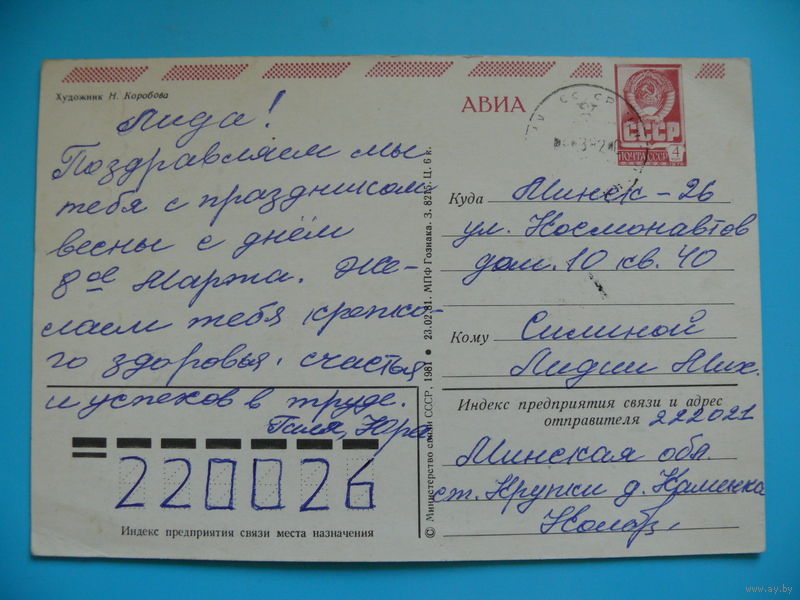 Художник Н. Коробова
Лида!
Поздравляем мы
тебя с праздником
весны с днём
8ое Марта. Же-
лаем тебя крепко-
го здоровья, счастья
и успехов в труде.
Галя, Юра
220026
Индекс предприятия связи места назначения
© Министерство связи СССР, 1981 ● 23.02.81. МПФ Гознака. З. 8215. Ц. 6 к.
АВИА
СССР
ПОЧТА СССР
4
Куда Минск - 26
ул. Космонавтов
дом. 10 кв. 40
Кому Силиной
Лидии Мих.
Индекс предприятия связи и адрес
отправителя 222021
Минская обл.
ст. Крупки д. Каменка
www.ay.by